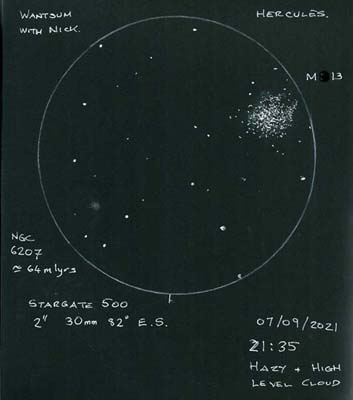 WANTSUM
WITH NICK.
HERCULES.
M 13
NGC
6207
≈ 64 mlyrs
STARGATE 500
2" 30mm 82° E.S.
07/09/2021
21:35
HAZY + HIGH
LEVEL CLOUD